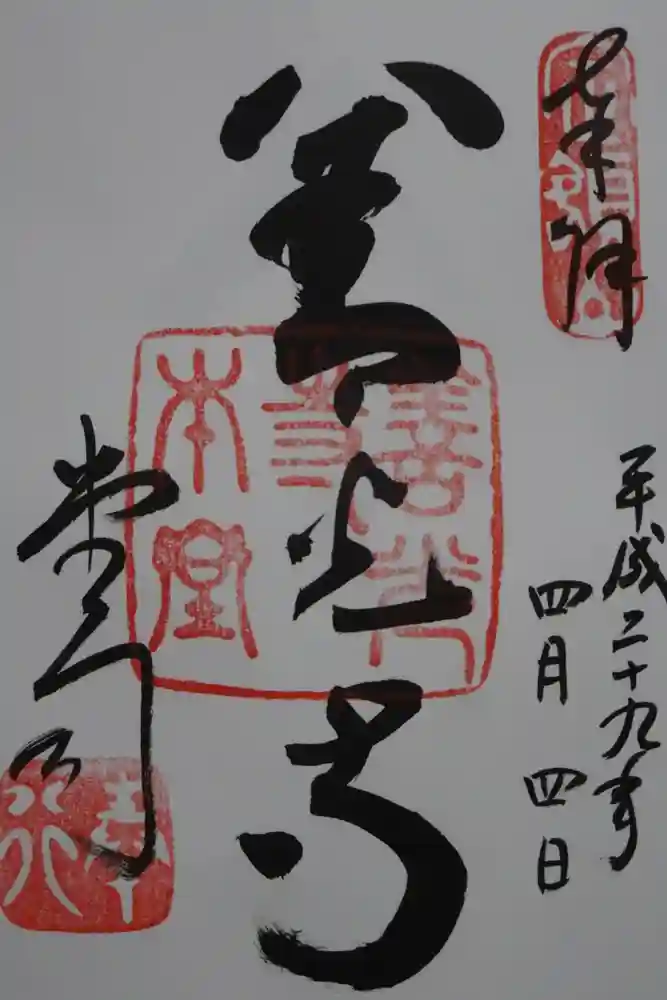 奉拝
平成二十九年
四月四日
善光寺
善光
寺
本堂
堂司